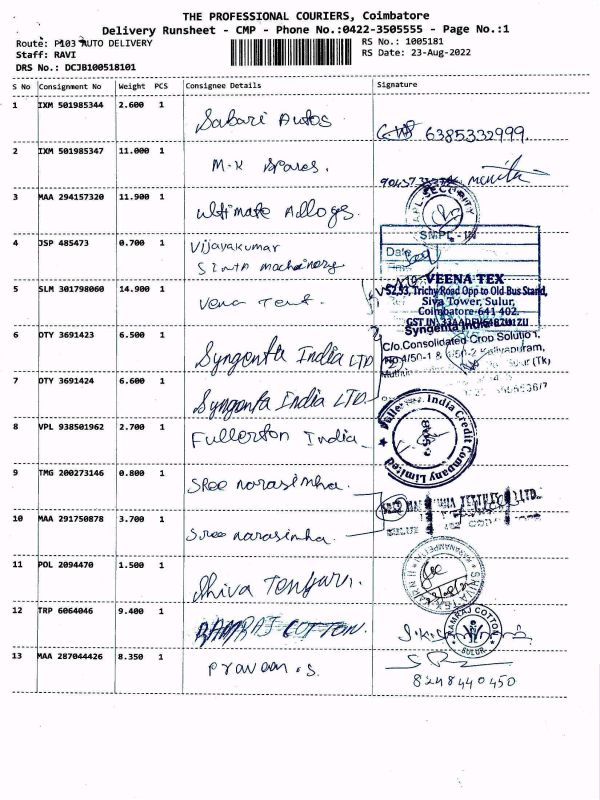 THE PROFESSIONAL COURIERS, Coimbatore
Delivery Runsheet - CMP - Phone No.:0422-3505555 - Page No.:1
Route: P103 AUTO DELIVERY
RS No.: 1005181
Staff: RAVI
RS Date: 23-Aug-2022
DRS No.: DCJB100518101
S No Consignment No Weight PCS Consignee Details Signature
1 IXM 501985344 2.600 1 Sabari Autos 6385332999
2 IXM 501985347 11.000 1 M-K Spares.
3 MAA 294157320 11.900 1 ultimate Alloys
SECURITY
4 JSP 485473 0.700 1 Vijayakumar
SMPL - IN
Date
5 SLM 301798060 14.900 1 Vena Text.
VEENA TEX
52,53, Trichy Road Opp to Old Bus Stand,
Siva Tower, Sulur,
Coimbatore-641 402.
GST IN
6 DTY 3691423 6.500 1 Syngenta India LTD
Syngenta India
C/o.Consolidated Crop Solution
7 DTY 3691424 6.600 1 Syngenta India LTD.
8 VPL 938501962 2.700 1 Fullerton India
Fullerton India Credit Company Limited
9 TMG 200273146 0.800 1 Sree narasimha.
10 MAA 291750878 3.700 1 Sree narasimha.
11 POL 2094470 1.500 1 Shiva
12 TRP 6064046 9.400 1 RAMRAJ COTTON.
RAMRAJ COTTON
SULUR
13 MAA 287044426 8.350 1 Praveen.s
8248440450